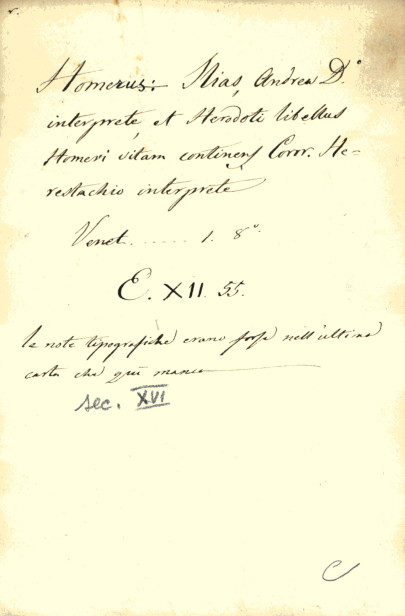 Homerus: Ilias, Andrea D.º
interprete, et Herodoti libellus
Homeri vitam continens Conr. He-
restachio interprete
Venet. ...... 1. 8º.
E. XII. 55.
le note tipografiche erano forse nell'ultima
carta che quì manca
sec. XVI